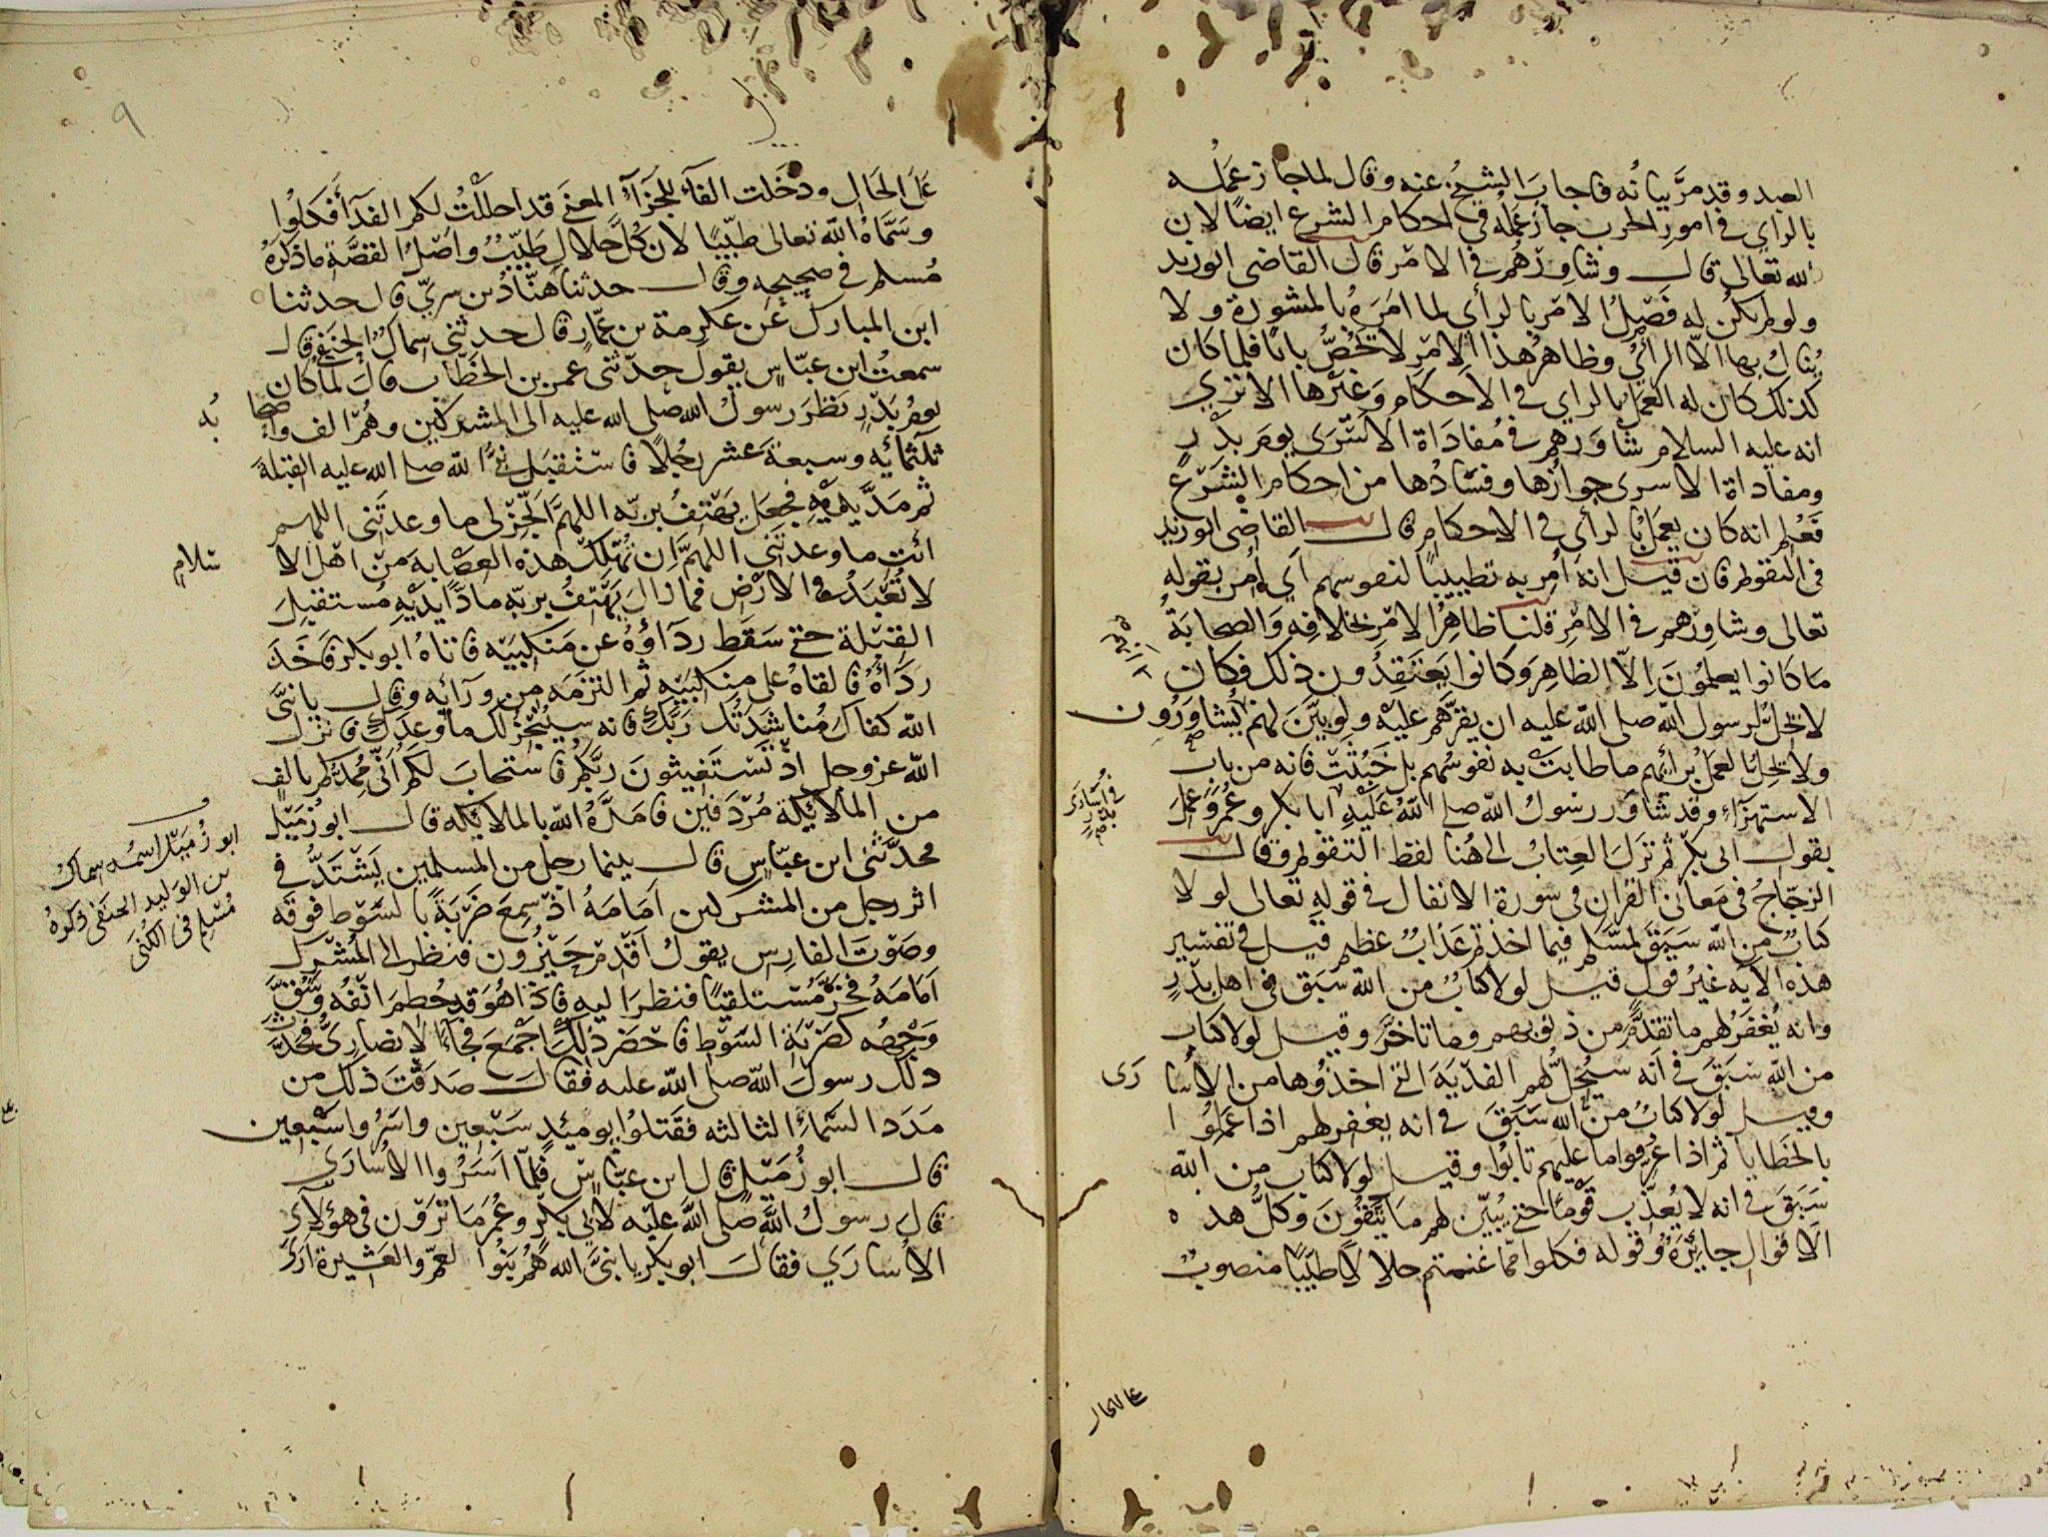 الصيد وقد مرَّ بيانُه فاجابَ الشيخُ عنه وقال لما جاز عَمَلُه
بالراي في امورِ الحرب جاز عَمَلُه في احكام الشرع ايضًا لان
الله تعالى قال وشاورْهُم في الامْر قال القاضي ابوزيد
ولو لم يكُن له فَصْلُ الامْر بالرأي لما امَرَهُ بالمشورة ولا
يُنَال بها الّا الرأيُ وظاهرُ هذا الامْر لا يخصُّ بابًا فلما كان
كذلك كان له العَمَلُ بالراي في الاحكام وَغيْرها الا تري
انه عليه السلام شاوَرهم في مُفادَاة الاسْرَى يوم بدْرٍ
ومفاداة الاسرى جوازُها وفسَادُها من احكام الشرْع
فعُلم انه كان يعمَلُ بالرأي في الاحكام قال القاضي ابوزيد
في التقويم فان قيل انه أُمِر به تطييبًا لنفوسهم اي أُمر بقوله
تعالى وشاورْهم في الامْرِ قلنا ظاهِرُ الامْرِ بخلافه وَالصحابَةُ
مَا كانوا يعلمُونَ إلّا الظاهِرَ وكانوا يَعتقدُون ذلك فكان
لا يحِلُّ لرسول الله صلى الله عليه ان يقرَّهم عليْه ولو بيَّنَ لهم يُشاورُون
ولا يحِلُّ العَملُ برائهم ما طابَتْ به نفوسُهم بل خَبُثَتْ فانه من باب
الاستهزاءِ وقد شاوَر رسُولُ الله صلى اللهُ عَليْهِ ابا بكر وعُمَرَ وعَمِلَ
بقول ابى بكْرٍ ثم نزَلَ العِتابُ الى هُنا لفظ التقويم وقال
الزجّاجُ في مَعاني القران في سورة الانفال في قولهِ تعالى لولا
كتابٌ من الله سَبَقَ لمسّكم فيما اخذتم عَذابٌ عظيم قيل في تفسير
هذه الايه غيرُ قولٍ قيل لولا كتابٌ من الله سَبَق في اهل بدْرٍ
وانه يُغفرُ لهم ما تقدَّمَ من ذنوبهم وما تاخَّر وقيل لولا كتاب
من اللهِ سَبَقَ في اَنه سَيُحِلُّ لهم الفدْيَةَ التي اخذُوها من الاُسَا رَى
وقيل لولا كتابٌ من الله سَبَقَ في انه يغفر لهم اذا عَمِلُوا
بالخطايا ثم اذا عُرِفوا ما عليهم تابُوا وقيل لولا كتاب من الله
سَبَقَ في انه لا يُعذّب قَوْمًا حتى يُبيّن لهم مَا يَتَّقُونَ وَكلُّ هذه
الاَقوال جايزَةٌ وقوله فكلوا ممّا غنمتم حلالًا طيّبًا منصوبٌ
في اُسارَى بدْرٍ
على الحال
٩
عَلَى الحَالِ ودَخَلت الفآءُ للجزَآءِ المعنَى قد احللْتُ لكم الفدَآ فكلُوا
وسَمَّاهُ اللّٰه تعالى طيّبًا لان كُلَّ حلالٍ طَيّبٌ واصْلُ القصَّةِ ما ذكَرَهُ
مُسلم في صحيحِه وقال حدثنا هنَّادُ بن سريّ قال حدثنا
ابن المبارك عَن عكرمة بن عمّارٍ قال حدثني سِماكٌ الحنفى قال
سمعتُ ابن عبّاسٍ يقول حدّثني عمر بن الخطّاب قال لمّا كان
يومُ بَدْرٍ نظرَ رسولُ الله صلى الله عليه الى المشركين وهُم الف واصحابُه
ثلثمائه وسبعةَ عشر رجُلًا فاسْتقبلَ نبيُّ اللّه صلى الله عليه القبلةَ
ثم مَدَّ يدَيْهِ فجعل يهتفُ بربّه اللهمَّ اَنجِزْ لى ما وعدتَني اللهم
ائتِ ما وعدتَني اللهمَّ إن تُهلِكْ هذه العصَابة منْ اهْل الا سْلام
لا تُعْبَدُ في الارْض فما زالَ يَهتِفُ بربّه مادًّا يدَيْهِ مُستقبِلَ
القبْلة حتى سَقَط ردَآؤُهُ عن مَنكبيْه فاتاهُ ابو بكر فاَخَذَ
ردَآءَهُ فالقاهُ على منكبَيْه ثم التزَمَه من ورآئه وقال يا نبيَّ
اللّه كفاكَ مُناشدَتُك ربَّك فانه سيُنْجِزُ لك ما وعدَكَ فانزل
اللّه عز وجل اذْ تسْتغيثونَ ربَّكم فاستجابَ لكم اَنّى مُمِدُّكم بالفٍ
من الملائكة مُرْدَفين فامَدَّهُ اللّه بالملائكه قال ابو زُمَيْل
محدّثني ابن عبّاسٍ قال بينما رجل من المسلمين يَشْتَدُّ في
اثر رجل من المشركين اَمَامَهُ اذْ سمِعَ ضَرْبَةً بالسَّوْط فوقه
وصَوْتَ الفارس يقولُ اَقْدِمْ حَيْزُون فنظر الى المُشْرك
اَمَامَهُ فخرَّ مُسْتلقيًا فنظرَ اليه فاذا هُوَ قد خُطِمَ انْفُه وشُقَّ
وَجْهُه كضرْبَة السّوْط فاخضرَّ ذلك اجْمَعُ فجآءَ الانصارىُّ فحَدَّثَ
ذلك رسولَ اللّه صلى اللّه عليه فقال صَدقْتَ ذلك من
مَدَد السّماءِ الثالثه فقَتلُوا يومئذٍ سَبْعين واسَرُوا سَبْعين
قال ابو زُمَيْل قال ابن عبّاسٍ فلمّا اَسَرُوا الاُسَارَى
قالَ رسولُ اللّه صلى اللّٰه عليْه لابى بكْرٍ وعُمَرَ ما تروْن في هؤلآءِ
الاُسارَي فقالَ ابو بكر يا نبىَّ الله هُم بَنُوا العمّ والعَشيرة ارَى
ابو زُمَيْل اسمُه سماك
بن الوَليد الحنفى ذكرهُ
مُسْلم في الكُنَى